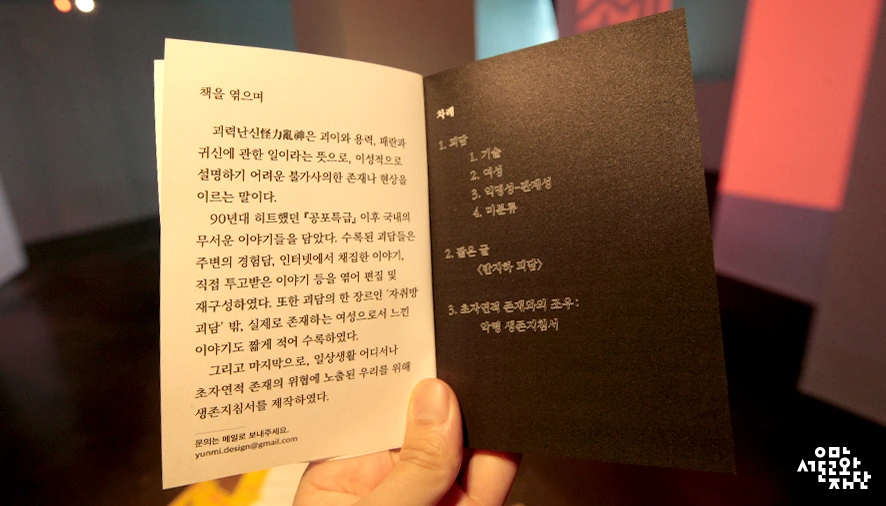 책을 엮으며
괴력난신怪力亂神은 괴이와 용력, 패란과
귀신에 관한 일이라는 뜻으로, 이성적으로
설명하기 어려운 불가사의한 존재나 현상을
이르는 말이다.
90년대 히트했던 『공포특급』 이후 국내의
무서운 이야기들을 담았다. 수록된 괴담들은
주변의 경험담, 인터넷에서 채집한 이야기,
직접 투고받은 이야기 등을 엮어 편집 및
재구성하였다. 또한 괴담의 한 장르인 '자취방
괴담' 밖, 실제로 존재하는 여성으로서 느낀
이야기도 짧게 적어 수록하였다.
그리고 마지막으로, 일상생활 어디서나
초자연적 존재의 위협에 노출된 우리를 위해
생존지침서를 제작하였다.
문의는 메일로 보내주세요.
yunmi.design@gmail.com
차례
1. 괴담
1. 기술
2. 여성
3. 익명성-관계성
4. 미분류
2. 짧은 글
〈반지하 괴담〉
3. 초자연적 존재와의 조우:
악령 생존지침서
서울문화재단